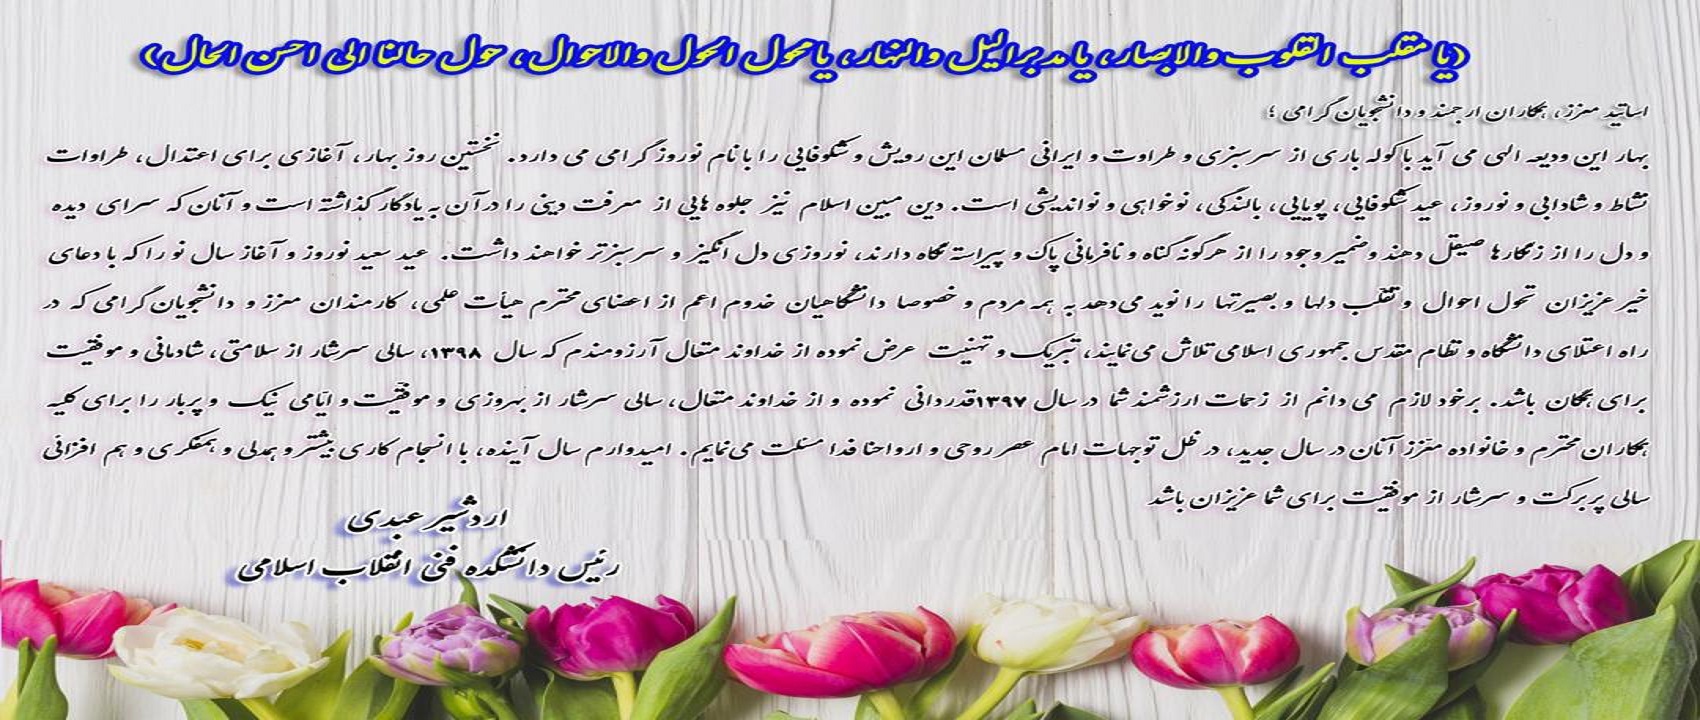 (یا مقلب القلوب والابصار، یا مدبر الیل والنهار، یا محول الحول والاحوال، حول حالنا الی احسن الحال)
اساتید معزز، همکاران ارجمند و دانشجویان گرامی ؛
بهار این ودیعه الهی می آید با کوله باری از سرسبزی و طراوت و ایرانی مسلمان این رویش و شکوفایی را با نام نوروز گرامی می دارد. نخستین روز بهار، آغازی برای اعتدال، طراوات
نشاط و شادابی و نوروز، عید شکوفایی، پویایی، بالندگی، نوخواهی و نواندیشی است. دین مبین اسلام نیز جلوه هایی از معرفت دینی را درآن به یادگار گذاشته است و آنان که سرای دیده
و دل را از زنگارها صیقل دهند و ضمیر وجود را از هرگونه گناه و نافرمانی پاک و پیراسته نگاه دارند، نوروزی دل انگیز و سرسبزتر خواهند داشت. عید سعید نوروز و آغاز سال نو را که با دعای
خیر عزیزان تحول احوال و تقلب دلها و بصیرتها را نوید می‌دهد به همه مردم و خصوصا دانشگاهیان خدوم اعم از اعضای محترم هیأت علمی، کارمندان معزز و دانشجویان گرامی که در
راه اعتلای دانشگاه و نظام مقدس جمهوری اسلامی تلاش می‌نمایند، تبریک و تهنیت عرض نموده از خداوند متعال آرزومندم که سال ۱۳۹۸، سالی سرشار از سلامتی، شادمانی و موفقیت
برای همگان باشد. برخود لازم می دانم از زحمات ارزشمند شما در سال ۱۳۹۷قدردانی نموده و از خداوند متعال، سالی سرشار از بهروزی و موفقیت و ایّامی نیک و پربار را برای کلیه
همکاران محترم و خانواده معزز آنان در سال جدید، در ظل توجهات امام عصر روحی و ارواحنا فدا مسئلت می‌نمایم. امیدوارم سال آینده، با انسجام کاری بیشتر و همدلی و همفکری و هم افزائی
سالی پربرکت و سرشار از موفقیت برای شما عزیزان باشد
اردشیر عبدی
رئیس دانشکده فنی انقلاب اسلامی